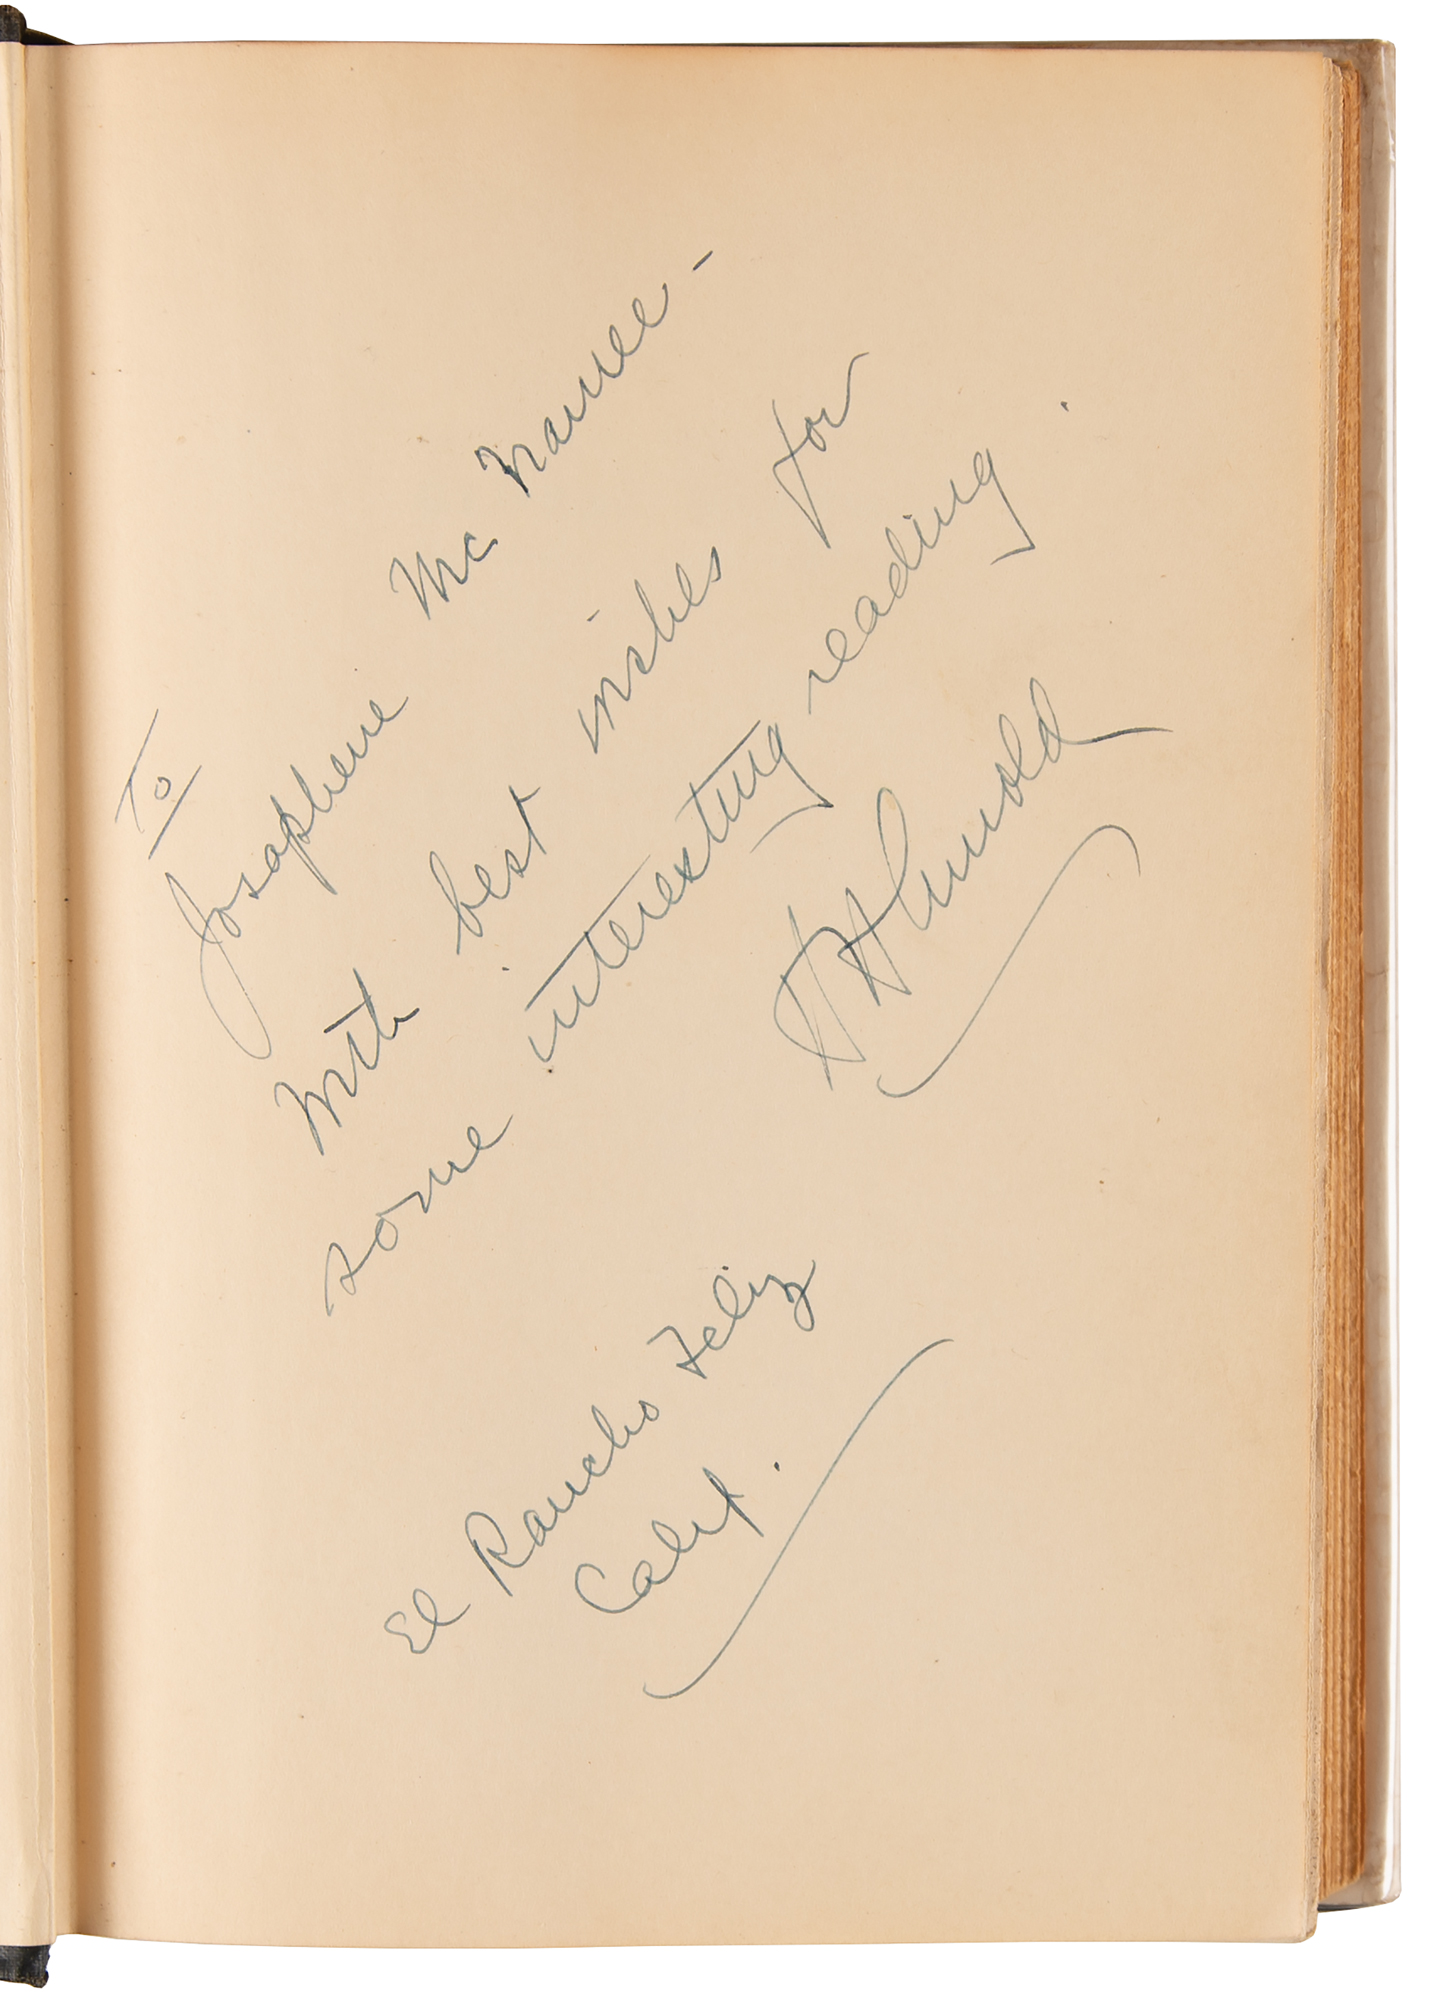 To
Josaphene McNamee -
With best wishes for
some interesting reading.
HHArnold
El Rancho Feliz
Calif.